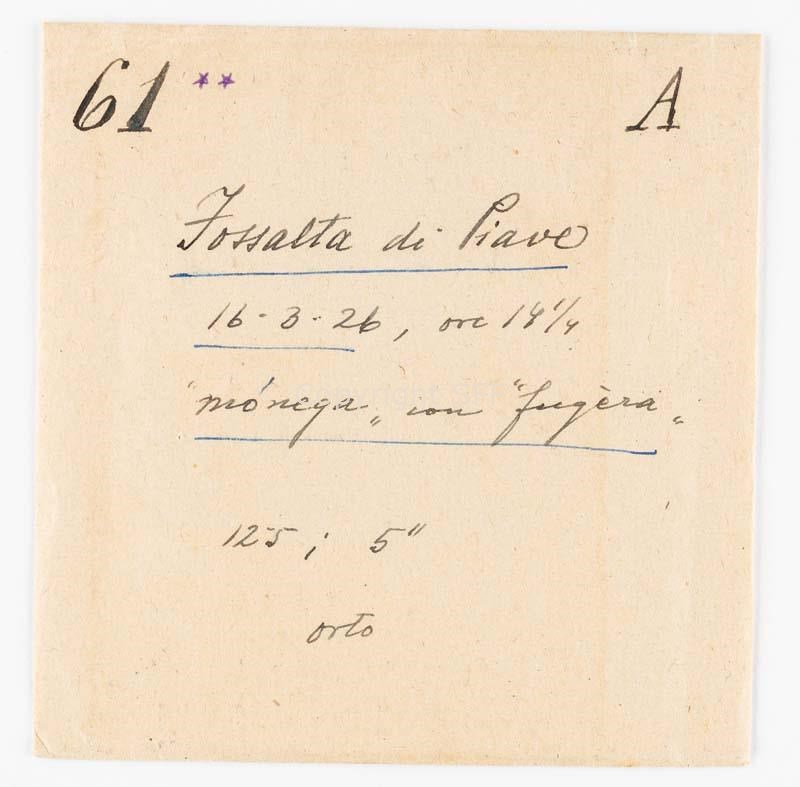 61 ** A
Fossalta di Piave
16-3-26, ore 14 1/4
"mónega" con "fugèra"
125; 5"
orto